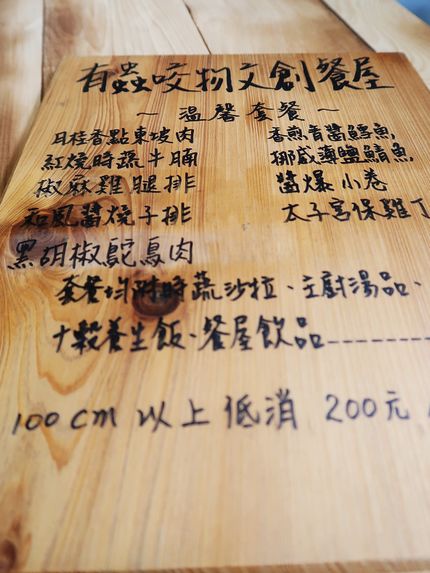 有蟲咬物文創餐屋
~ 溫馨套餐 ~
月桂香點東坡肉 香煎青醬
紅燒時蔬牛腩 挪威薄鹽鯖魚
椒麻雞腿排 醬爆小卷
和風醬燒子排 太子宮保雞丁
黑胡椒鴕鳥肉
套餐均附時蔬沙拉、主廚湯品、
十穀養生飯、餐屋飲品---------
100cm 以上低消 200元